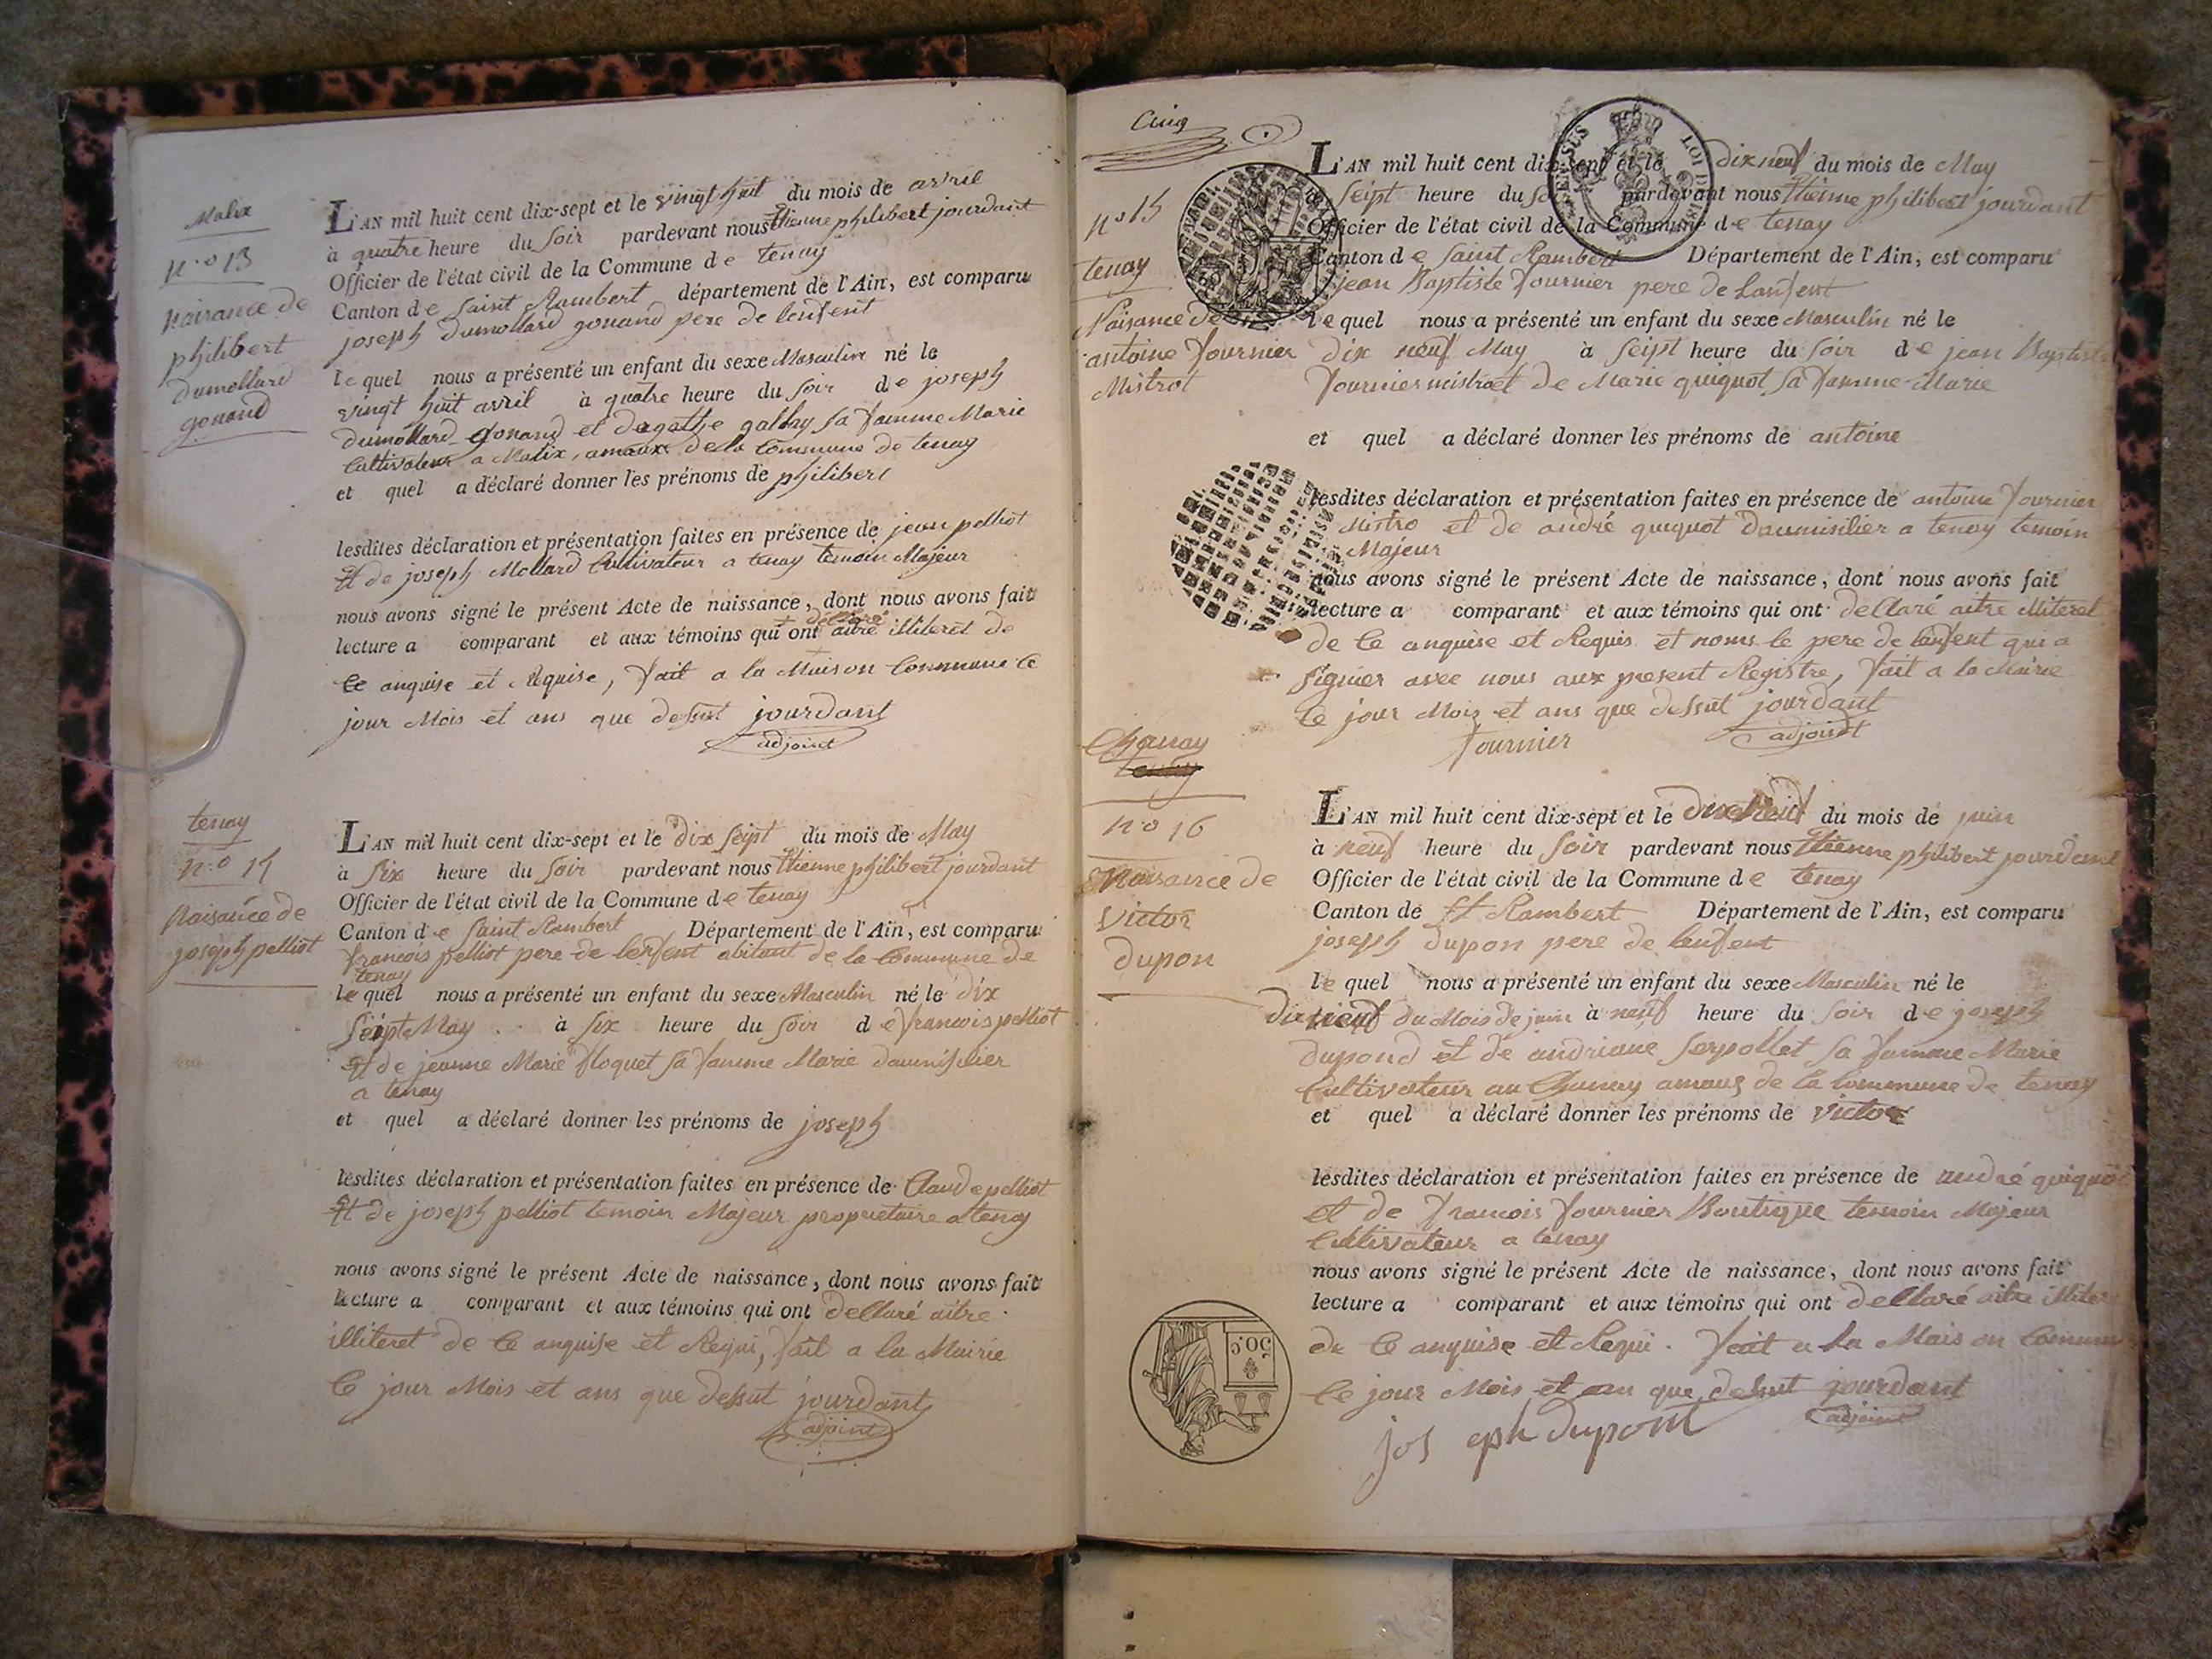 Malix
n.o 13
naisance de
philibert
dumollard
gonand
L'AN mil huit cent dix-sept et le vingt huit du mois de avril
à quatre heure du soir pardevant nous Etienne philibert jourdant
Officier de l'état civil de la Commune de tenay
Canton de saint Rambert département de l'Ain, est comparu
joseph dumollard gonand pere de lenfent
lequel nous a présenté un enfant du sexe Masculin né le
vingt huit avril à quatre heure du soir de joseph
dumollard gonand et dagathe gallay sa famme Marie
Cultivateur a Malix, amaux de la Commune de tenay
et quel a déclaré donner les prénoms de philibert
lesdites déclaration et présentation faites en présence de jean pelliot
Et de joseph Mollard Cultivateur a tenay temoin Majeur
nous avons signé le présent Acte de naissance, dont nous avons fait
+ déclaré
lecture a comparant et aux témoins qui ont aitre illiteret de
Ce anquise et Requise, fait a la Maison Commune le
jour Mois et ans que dessut jourdant
adjoint
tenay
n.o 14
Naisance de
joseph pelliot
L'AN mil huit cent dix-sept et le dix seipt du mois de May
à six heure du soir pardevant nous Etienne philibert jourdant
Officier de l'état civil de la Commune de tenay
Canton de saint Rambert Département de l'Ain, est comparu
francois pelliot pere de lenfent abitant de la Commune de
tenay
lequel nous a présenté un enfant du sexe Masculin né le dix
seipt May à six heure du soir de francois pelliot
Et de jeanne Marie floquet sa famme Marie daumisilier
a tenay
et quel a déclaré donner les prénoms de joseph
lesdites déclaration et présentation faites en présence de Claude pelliot
Et de joseph pelliot temoin Majeur proprietaire a tenay
nous avons signé le présent Acte de naissance, dont nous avons fait
lecture a comparant et aux témoins qui ont dellaré aitre
illiteret de Ce anquise et Requi, fait a la Mairie
le jour Mois et ans que dessut jourdant
adjoint
Cinq
n.o 15
tenay
Naisance de
antoine fournier
Mistrot
L'AN mil huit cent dix-sept et le dix neuf du mois de May
seipt heure du soir pardevant nous Etienne philibert jourdant
Officier de l'état civil de la Commune de tenay
Canton de saint Rambert Département de l'Ain, est comparu
jean Baptiste fournier pere de lanfent
lequel nous a présenté un enfant du sexe Masculin né le
dix neuf May à seipt heure du soir de jean Baptiste
fournier mistra et de Marie quiquot sa famme Marie
et quel a déclaré donner les prénoms de antoine
lesdites déclaration et présentation faites en présence de antoine fournier
Mistro et de andré quiquot daumisilier a tenay temoin
Majeur
nous avons signé le présent Acte de naissance, dont nous avons fait
lecture a comparant et aux témoins qui ont dellaré aitre illiteret
de Ce anquise et Requis et noms le pere de lanfent qui a
signier avec nous aux present Registre, fait a la Mairie
le jour Mois et ans que dessut jourdant
fournier adjoint
Chanay
tenay
n.o 16
Naisance de
victor
dupon
L'AN mil huit cent dix-sept et le dix neuf du mois de juin
à neuf heure du soir pardevant nous Etienne philibert jourdant
Officier de l'état civil de la Commune de tenay
Canton de St Rambert Département de l'Ain, est comparu
joseph dupon pere de lenfent
lequel nous a présenté un enfant du sexe Masculin né le
dix neuf du Mois de juin à neuf heure du soir de joseph
dupond et de andriane serpollet sa famme Marie
Cultivateur au Chanay amaux de la Commune de tenay
et quel a déclaré donner les prénoms de victor
lesdites déclaration et présentation faites en présence de andré quiquot
et de francois fournier Boutique temoin Majeur
Cultivateur a tenay
nous avons signé le présent Acte de naissance, dont nous avons fait
lecture a comparant et aux témoins qui ont dellaré aitre
de Ce anquise et Requi. fait a la Maison Commune
le jour Mois et an que dessut jourdant
adjoint
joseph dupont
50 C.